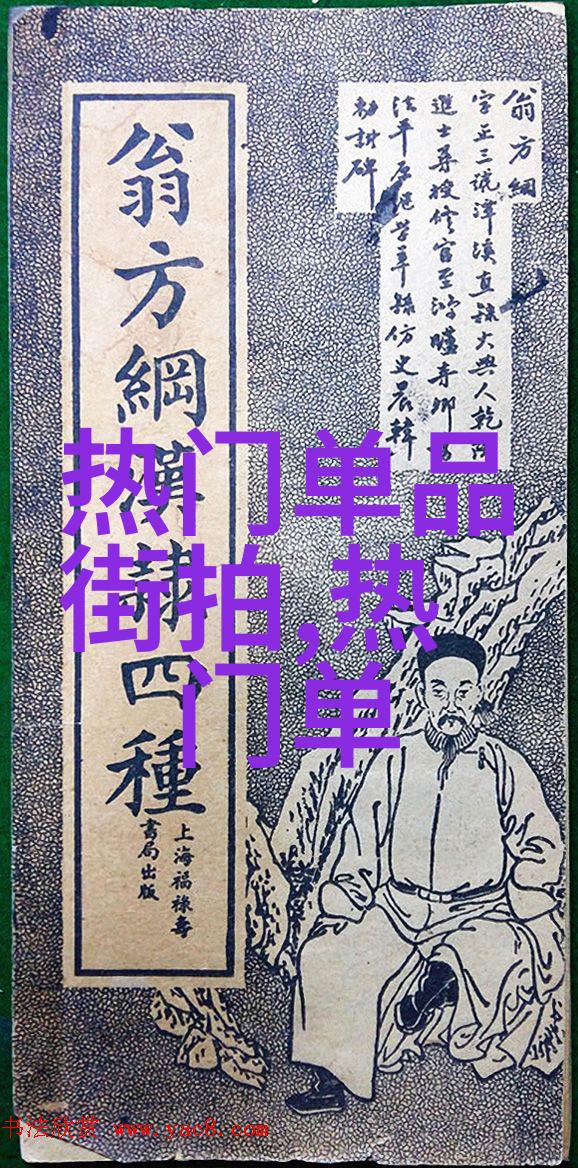 翁方綱
字正三號潭溪直隸大興人乾隆
進士尋授修官至鴻臚寺卿書
法平原率仿史晨韓
勅封碑
翁方綱漢隸四種
上海福祿壽
書局出版
热门单品
街拍,热
门单
书法欣赏 www.yac8.com